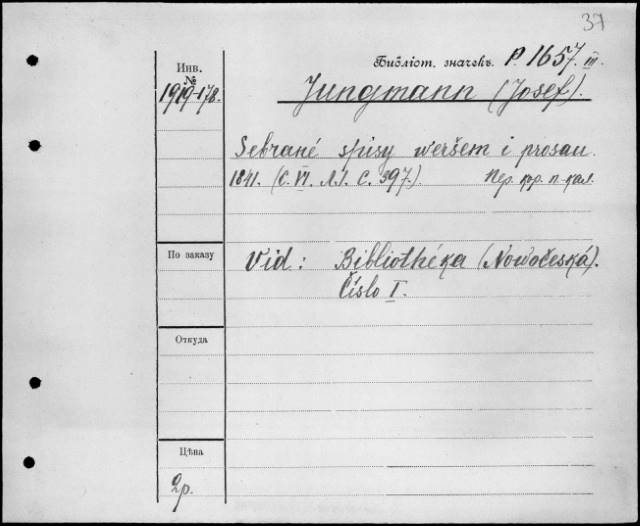 37
Библіот. значекъ P. 1657. III.
Инв.
№
1919-178.
Jungmann (Josef).
Sebrané spisy weršem i prosau.
1841. (C. VI. Л.I. C. 397.) Пер. кор. п-кал.
По заказу
Vid: Bibliothéka (Nowočeská).
Číslo I.
Откуда
Цѣна
2р.